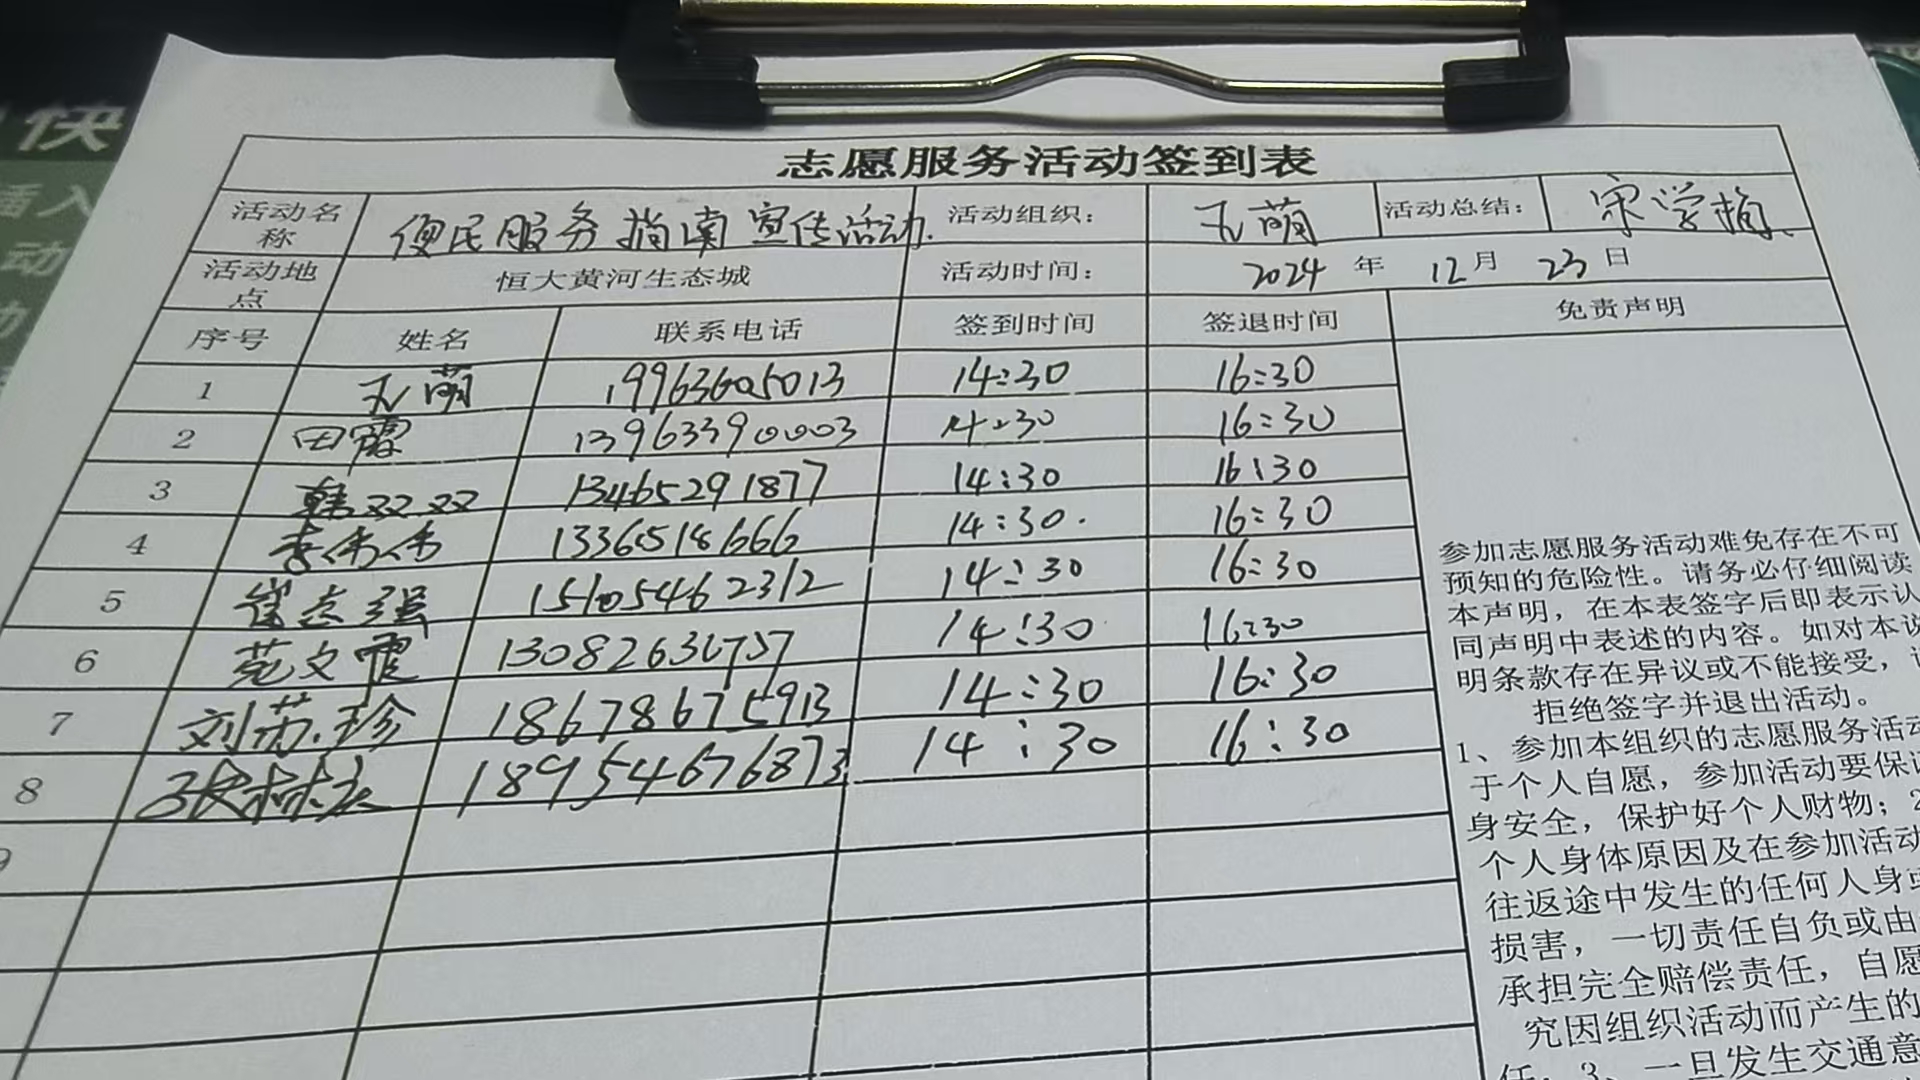 快
插入
动
志愿服务活动签到表
活动名称 便民服务指南宣传活动. 活动组织: 王萌 活动总结: 宋学梅
活动地点 恒大黄河生态城 活动时间: 2024 年 12 月 23 日
序号 姓名 联系电话 签到时间 签退时间 免责声明
1 王萌 19963605013 14:30 16:30
2 田霞 13963390003 14:30 16:30
3 韩双双 13465291877 14:30 16:30
4 李伟伟 13365518666 14:30. 16:30
5 崔志强 15105462312 14:30 16:30
6 苑文霞 14:30 16:30
7 刘苏珍 18678675913 14:30 16:30
8 张林 18954676873 14:30 16:30
9
参加志愿服务活动难免存在不可
预知的危险性。请务必仔细阅读
本声明，在本表签字后即表示认
同声明中表述的内容。如对本说
明条款存在异议或不能接受，
拒绝签字并退出活动。
1、参加本组织的志愿服务活动
于个人自愿，参加活动要保证
身安全，保护好个人财物；2
个人身体原因及在参加活动
往返途中发生的任何人身或
损害，一切责任自负或由
承担完全赔偿责任，自愿
究因组织活动而产生的
任。3、一旦发生交通意